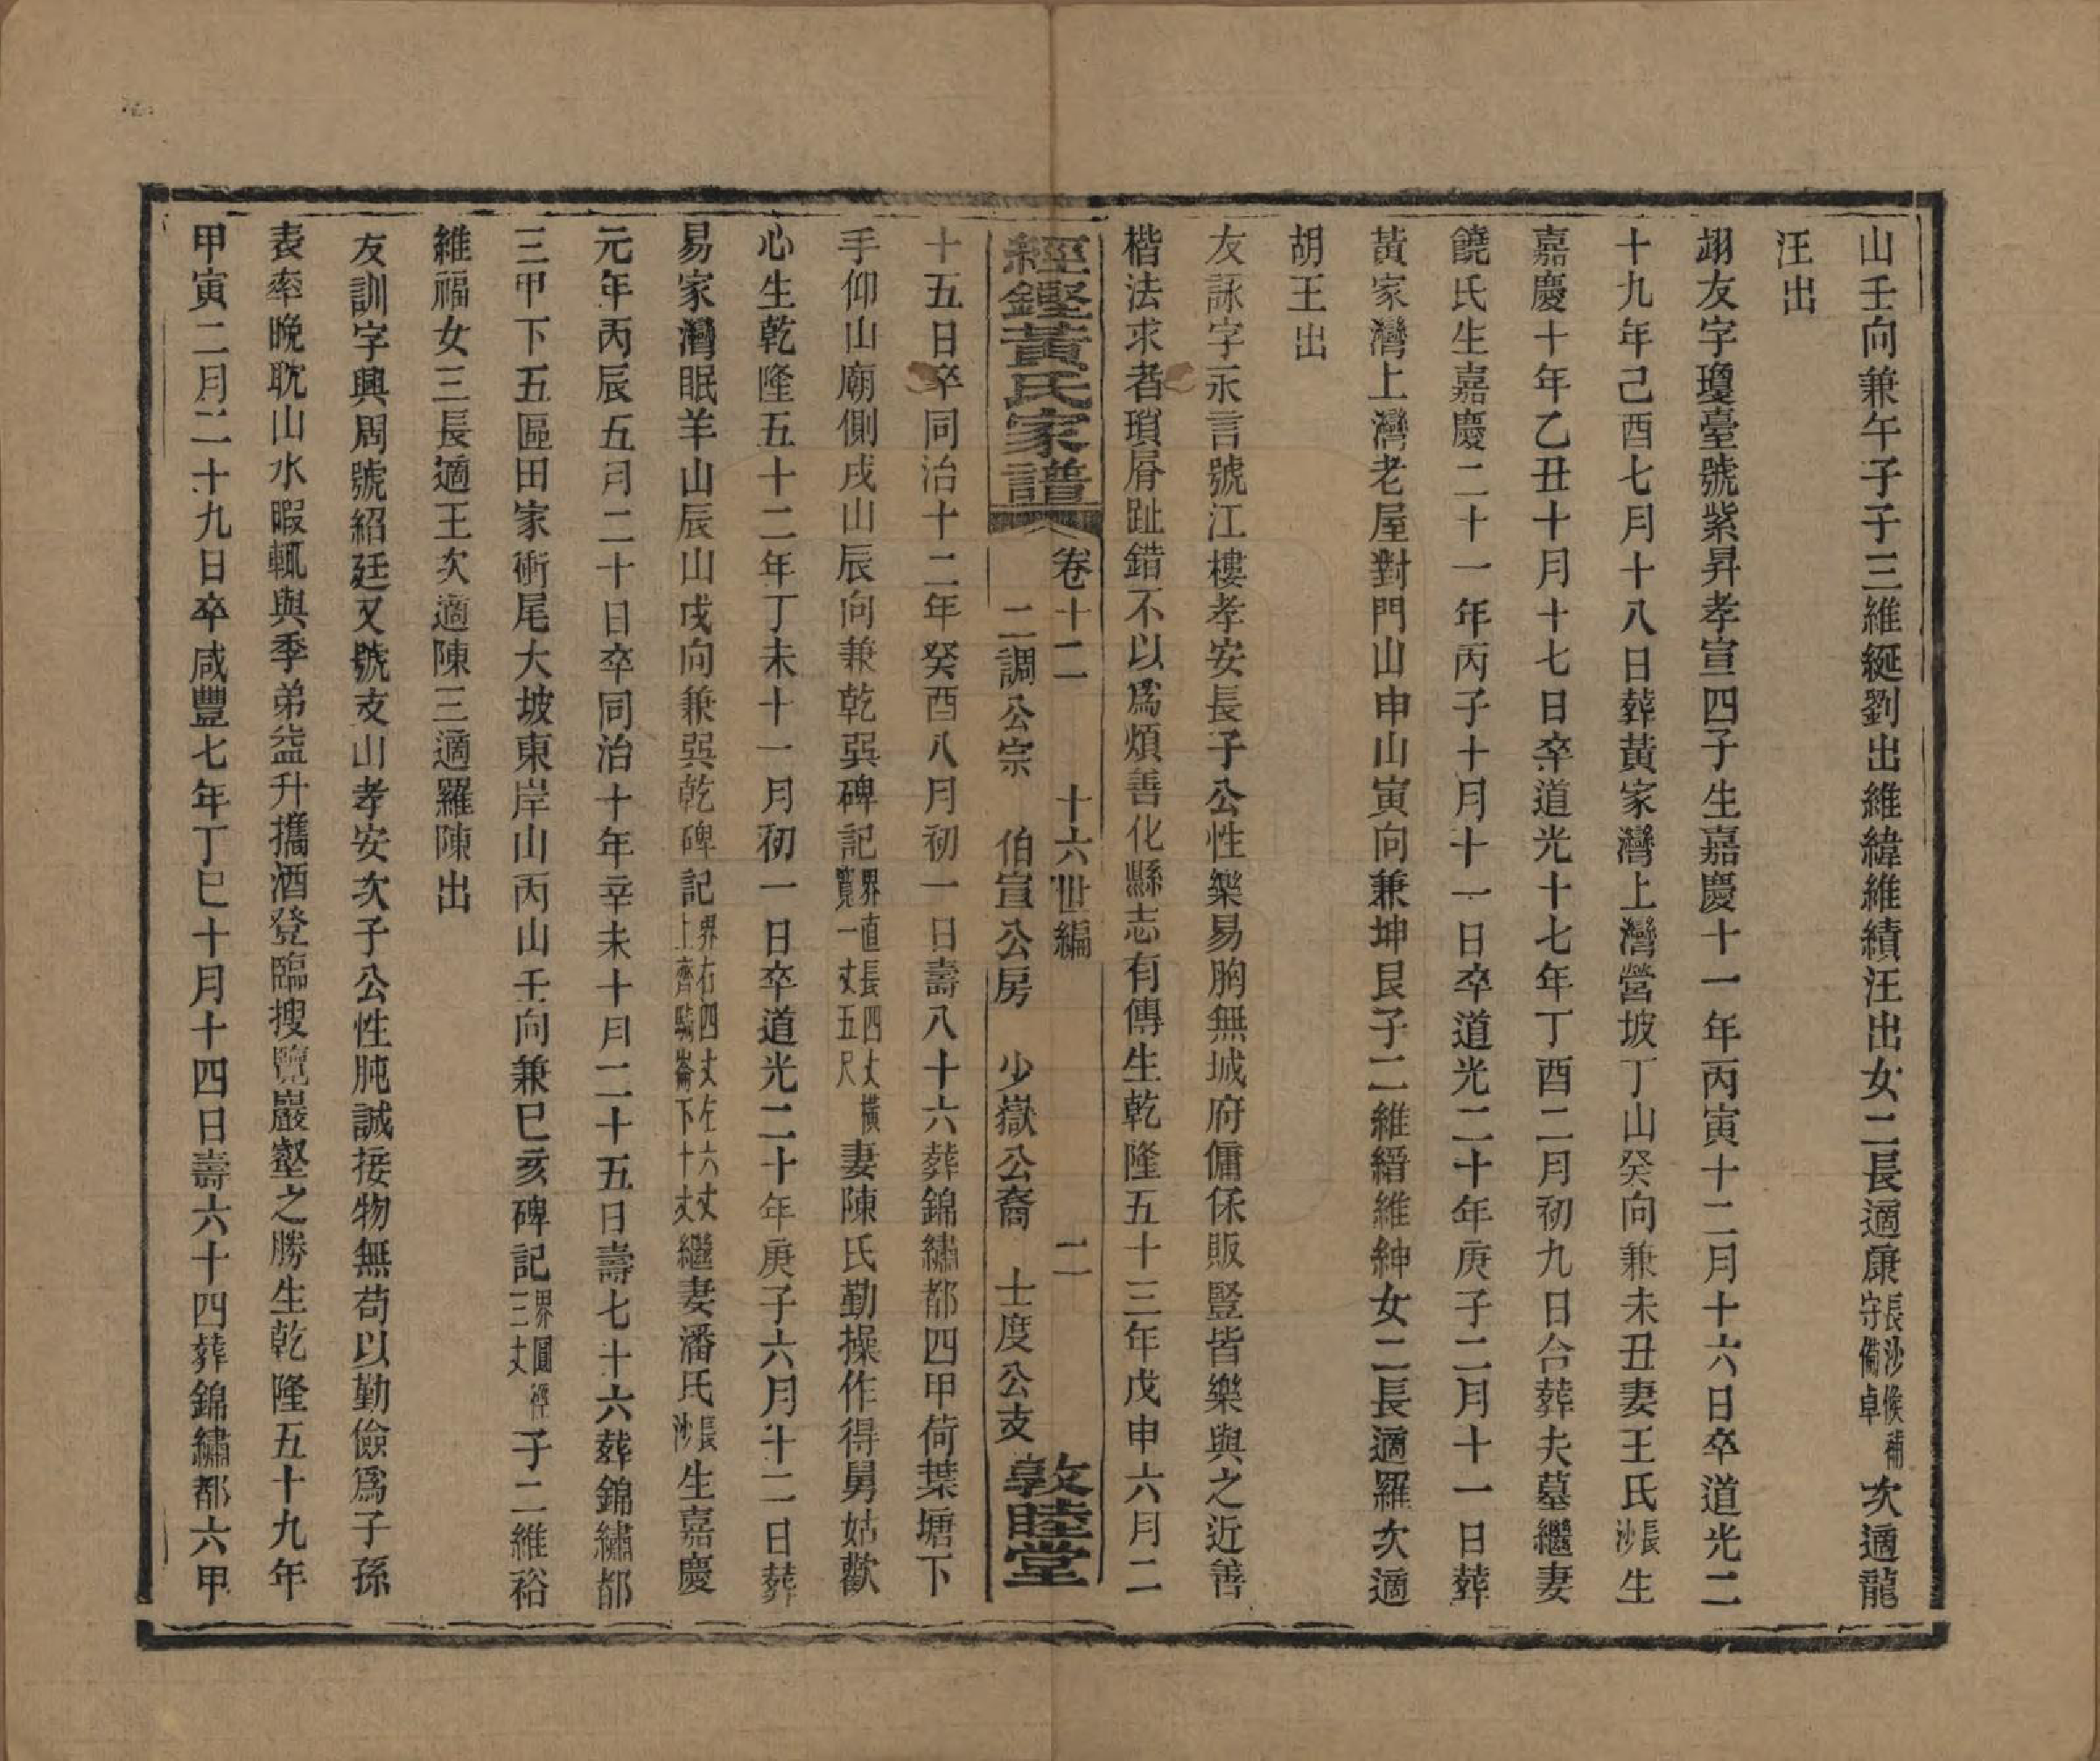 山壬向兼午子子三維綖劉出維緯維績汪出女二長適康長沙候補守備卓次適龍
汪出
翊友字瓊臺號紫昇孝宣四子生嘉慶十一年丙寅十二月十六日卒道光二
十九年己酉七月十八日葬黃家灣上灣營坡丁山癸向兼未丑妻王氏長沙生
嘉慶十年乙丑十月十七日卒道光十七年丁酉二月初九日合葬夫墓繼妻
饒氏生嘉慶二十一年丙子十月十一日卒道光二十年庚子二月十一日葬
黃家灣上灣老屋對門山申山寅向兼坤艮子二維縉維紳女二長適羅次適
胡王出
友詠字永言號江樓孝安長子公性樂易胸無城府傭保販豎皆樂與之近善
楷法求者瑣屑趾錯不以爲煩善化縣志有傳生乾隆五十三年戊申六月二
經鏗黃氏家譜 卷十二 十六世編 二
二調公宗 伯宣公房 少嶽公裔 士度公支 敦睦堂
十五日卒同治十二年癸酉八月初一日壽八十六葬錦繡都四甲荷葉塘下
手仰山廟側戌山辰向兼乾巽碑記界直長四丈橫寬一丈五尺妻陳氏勤操作得舅姑歡
心生乾隆五十二年丁未十一月初一日卒道光二十年庚子六月十二日葬
易家灣眠羊山辰山戌向兼巽乾碑記界右四丈左六丈上齊騎崙下十丈繼妻潘氏長沙生嘉慶
元年丙辰五月二十日卒同治十年辛未十月二十五日壽七十六葬錦繡都
三甲下五區田家衕尾大坡東岸山丙山壬向兼巳亥碑記界圓徑三丈子二維裕
維福女三長適王次適陳三適羅陳出
友訓字興周號紹廷又號支山孝安次子公性肫誠接物無苟以勤儉爲子孫
表率晚耽山水暇輒與季弟益升攜酒登臨搜覽巖壑之勝生乾隆五十九年
甲寅二月二十九日卒咸豐七年丁巳十月十四日壽六十四葬錦繡都六甲